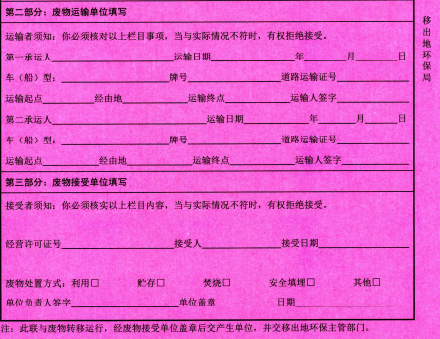 第二部分：废物运输单位填写
运输者须知：你必须核对以上栏目事项，当与实际情况不符时，有权拒绝接受。
第一承运人 运输日期 年 月 日
车（船）型： 牌号 道路运输证号
运输起点 经由地 运输终点 运输人签字
第二承运人 运输日期 年 月 日
车（船）型： 牌号 道路运输证号
运输起点 经由地 运输终点 运输人签字
第三部分：废物接受单位填写
接受者须知：你必须核实以上栏目内容，当与实际情况不符时，有权拒绝接受。
经营许可证号 接受人 接受日期
废物处置方式：利用□ 贮存□ 焚烧□ 安全填埋□ 其他□
单位负责人签字 单位盖章 日期
注：此联与废物转移运行，经废物接受单位盖章后交产生单位，并交移出地环保主管部门。
移出地环保局